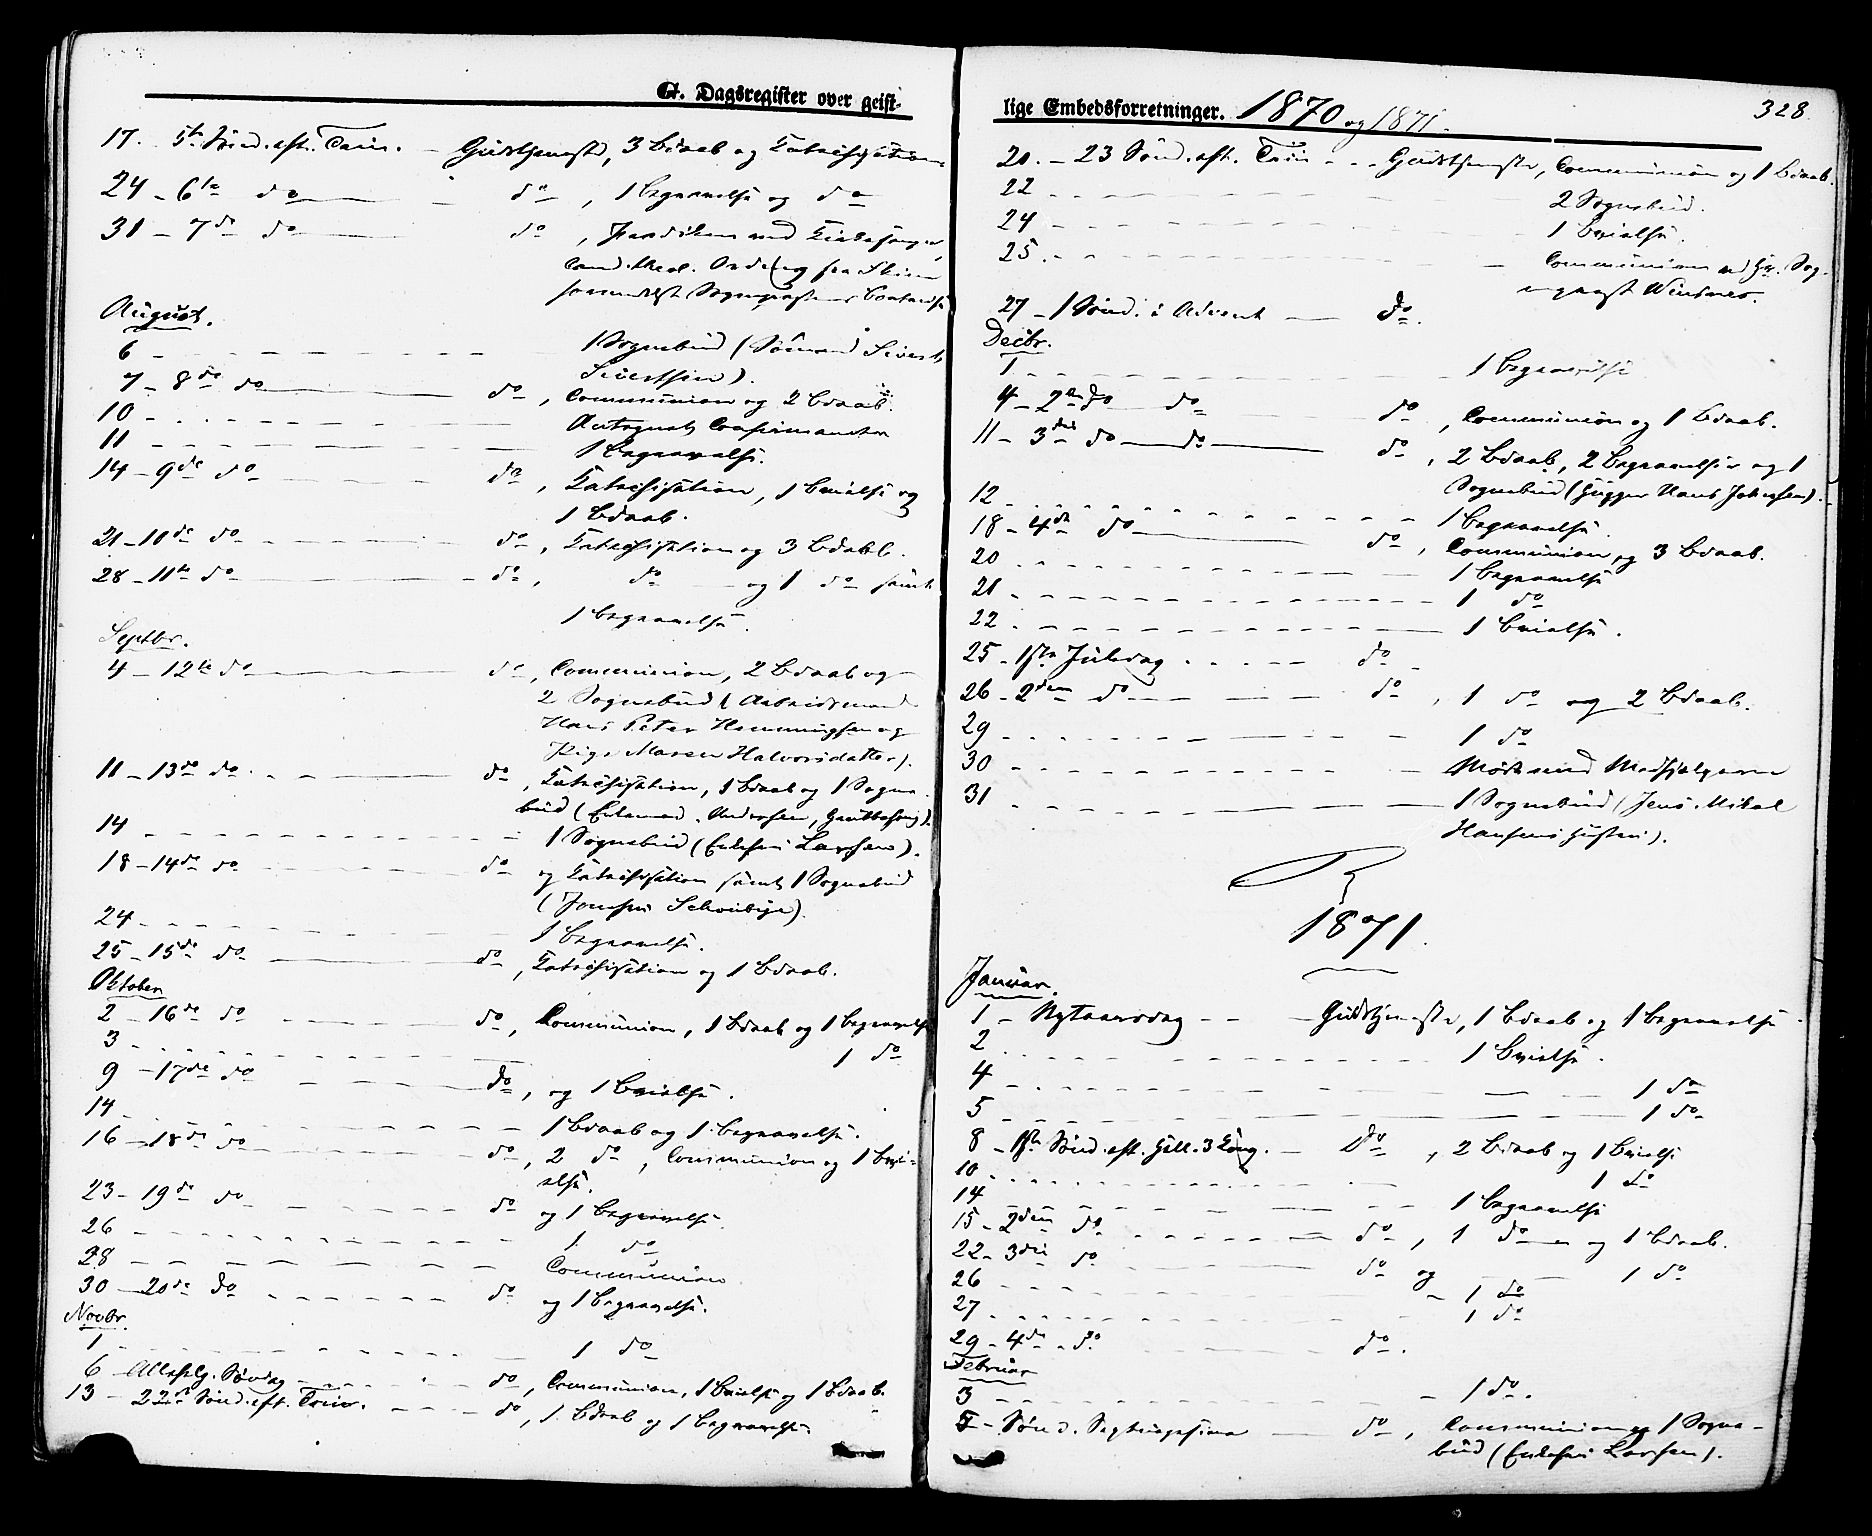 G. Dagsregister over geist-
17. 5te Sønd. eft. Trin. - Gudstjeneste, 3 Bdaab og Katechisation
24 - 6te do do, 1 Begravelse og do
31 - 7de do do, Prædiken ved Kirkesanger,
Cand. theol. fra Skien
formedelst Sognepræstens
August.
6 - 1 Sognebud (Sømand Sivert
Sivertsen).
7 - 8de do do, Communion og 2 Bdaab.
10 - Antegnet Confirmanter
11 - 1 Begravelse.
14 - 9de do do, Katechisation, 1 Vielse og
1 Bdaab.
21 - 10de do do, Katechisation og 3 Bdaab.
28 - 11te do do, do og 1 do samt
1 Begravelse.
Septbr.
4 - 12te do do, Communion, 2 Bdaab og
2 Sognebud (Arbeidsmand
Hans Peter Hemmingsen og
Pige Maren Halvorsdatter).
11 - 13de do do, Katechisation, 1 Bdaab og 1 Sogne-
bud (Andersen,
14 - 1 Sognebud (Larsen).
18 - 14de do do og Katechisation samt 1 Sognebud
24 - 1 Begravelse.
25 - 15de do do, Katechisation og 1 Bdaab.
Oktober
2 - 16de do do, Communion, 1 Bdaab og 1 Begravelse
3 1 do
9 - 17de do do, og 1 Vielse.
14 1 Bdaab og 1 Begravelse.
16 - 18de do do, 2 do, Communion og 1 Vi-
else.
23 - 19de do do og 1 Begravelse.
26 - 1 do
28 - Communion
30 - 20de do do og 1 Begravelse.
Novbr.
1 1 do
6 - Allehlg. Søndag - do, Communion, 1 Vielse og 1 Bdaab.
13 - 22de Sønd. eft. Trin. do, 1 Bdaab og 1 Begravelse.
lige Embedsforretninger. 1870 og 1871.
328.
20. - 23 Sønd. eft. Trin - Gudstjeneste, Communion og 1 Bdaab.
22 2 Sognebud.
24 1 Vielse.
25. Communion
27 - 1 Sønd. i Advent do.
Decbr.
1 1 Begravelse
4 - 2den do do do, Communion og 1 Bdaab.
11 - 3die do do do, 2 Bdaab, 2 Begravelser og 1
Sognebud (Hans Johnsen).
12 1 Begravelse.
18 - 4de do do, Communion og 3 Bdaab.
20 1 Begravelse
21 1 do
22 1 Vielse.
25 - 1ste Juledag do
26 - 2den do do, 1 do og 2 Bdaab.
29 1 do
30 Møde med Medhjælperne
31 1 Sognebud (Jens Mikal
Hansens Hustru).
1871.
Januar.
1 - Nytaarsdag - Gudstjeneste, 1 Bdaab og 1 Begravelse.
2 1 Vielse.
4 1 do
5 1 do
8 - 1ste Sønd. eft. Hell. 3 Kong. - do, 2 Bdaab og 1 Vielse
10 1 do
14 1 Begravelse
15 - 2den do do, 1 do og 1 Bdaab.
22 - 3die do do og 1 do
26 1 do
27 1 do
29 - 4de do do.
Februar
3 1 do.
5 - Sønd. Septuagesima do, Communion og 1 Sogne-
bud (Larsen).